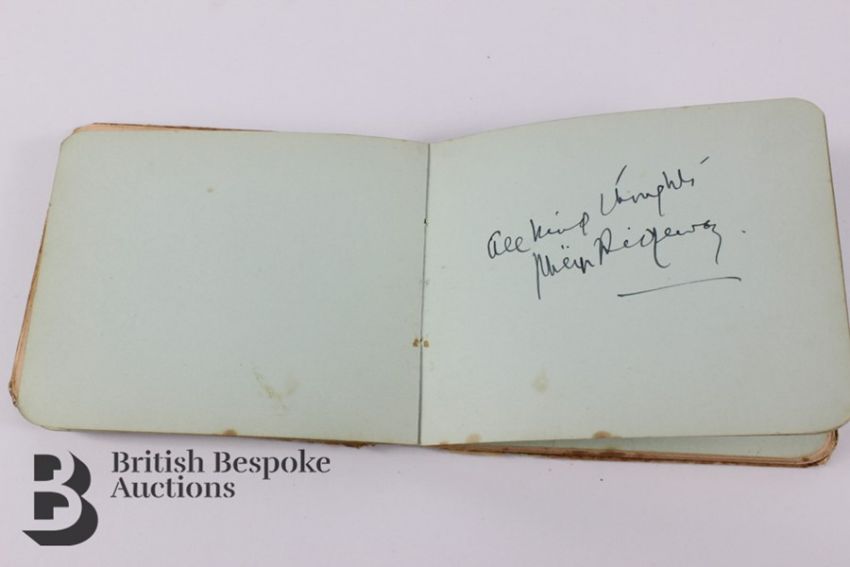 All kind thoughts
Philip Ridgeway.
British Bespoke
Auctions